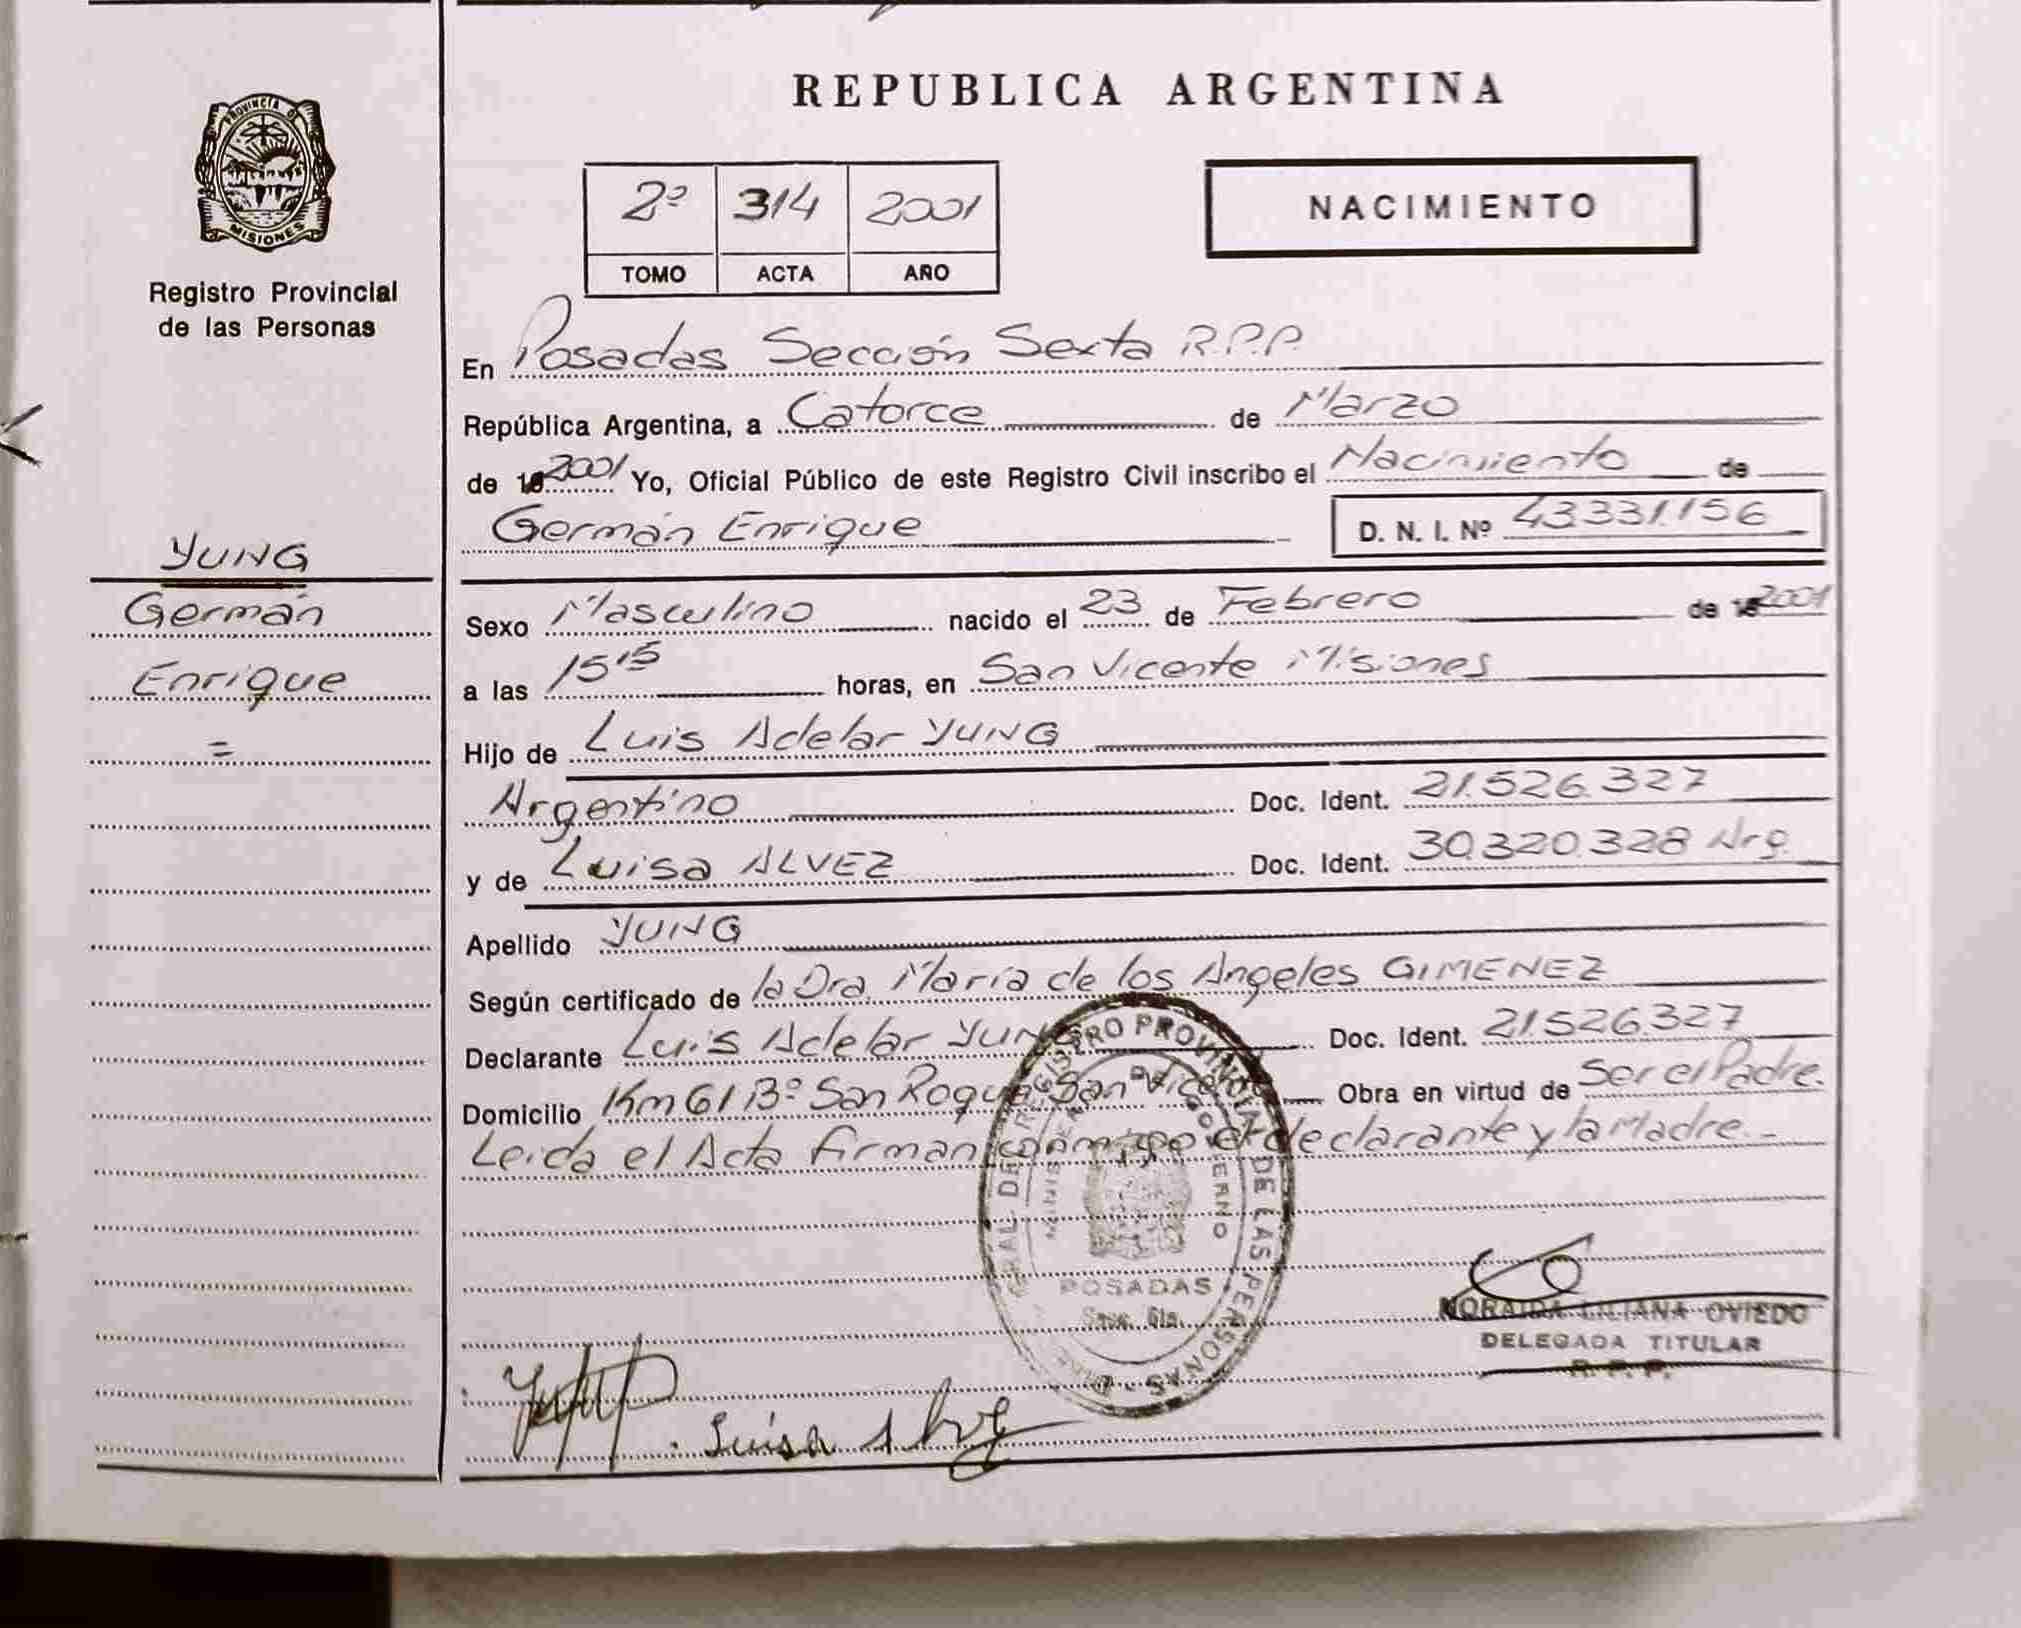 PROVINCIA DE
MISIONES
Registro Provincial
de las Personas
YUNG
Germán
Enrique
=
REPUBLICA ARGENTINA
2º 314 2001
TOMO ACTA AÑO
NACIMIENTO
En Posadas Sección Sexta R.P.P.
República Argentina, a Catorce de Marzo
de 19 2001 Yo, Oficial Público de este Registro Civil inscribo el Nacimiento de
Germán Enrique D. N. I. Nº 43.331.156
Sexo Masculino nacido el 23 de Febrero de 19 2001
a las 15 15 horas, en San Vicente Misiones
Hijo de Luis Adelar YUNG
Argentino Doc. Ident. 21.526.327
y de Luisa ALVEZ Doc. Ident. 30.320.328 Arg.
Apellido YUNG
Según certificado de la Dra. María de los Angeles GIMENEZ
Declarante Luis Adelar Yung Doc. Ident. 21.526.327
Domicilio Km 61 Bº San Roque San Vicente Obra en virtud de Ser el Padre.
Leida el Acta firman conmigo el declarante y la Madre.-
REGISTRO PROVINCIAL DE LAS PERSONAS
GOBIERNO
POSADAS
Secc. 6ta.
NORAIDA LILIANA OVIEDO
DELEGADA TITULAR
R. P. P.
Luisa Alvez